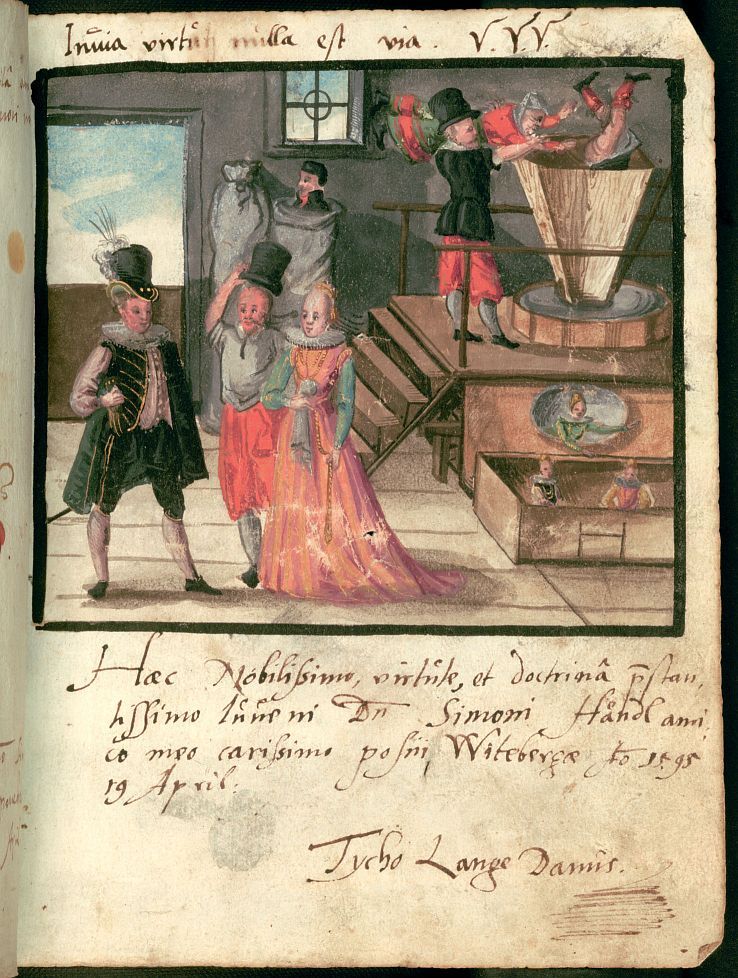 Inuia virtuti nulla est via. V. V. V.
Hæc Nobilissimo, virtute, et doctrinâ p̄stan,
tissimo Iuueni Dn̄ Simoni Håndl ami,
co meo carissimo posui Witebergæ Ao 1595
19 April.
Tycho Lange Danus.